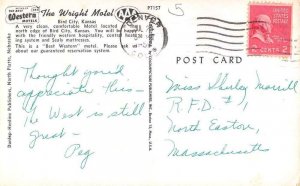 5
Best
Western
MOTELS
The Wright Motel
Bird City, Kansas
P7157
A very clean, comfortable Motel located at
north edge of Bird City, Kansas. You will be happy
with the friendly western hospitality, central heating
system and Sealy mattresses.
This is a "Best Western" motel, please ask
about our guaranteed reservation system.
AAA
DENVER
U.S. POSTAGE
2 CENTS 2
POST CARD
Thought you'd
appreciate this—
The West is still
great—
Peg
Miss Shirley Morrill
R.F.D. #1
North Easton,
Massachusetts
Dunlap-Henline Publishers, North Platte, Nebraska